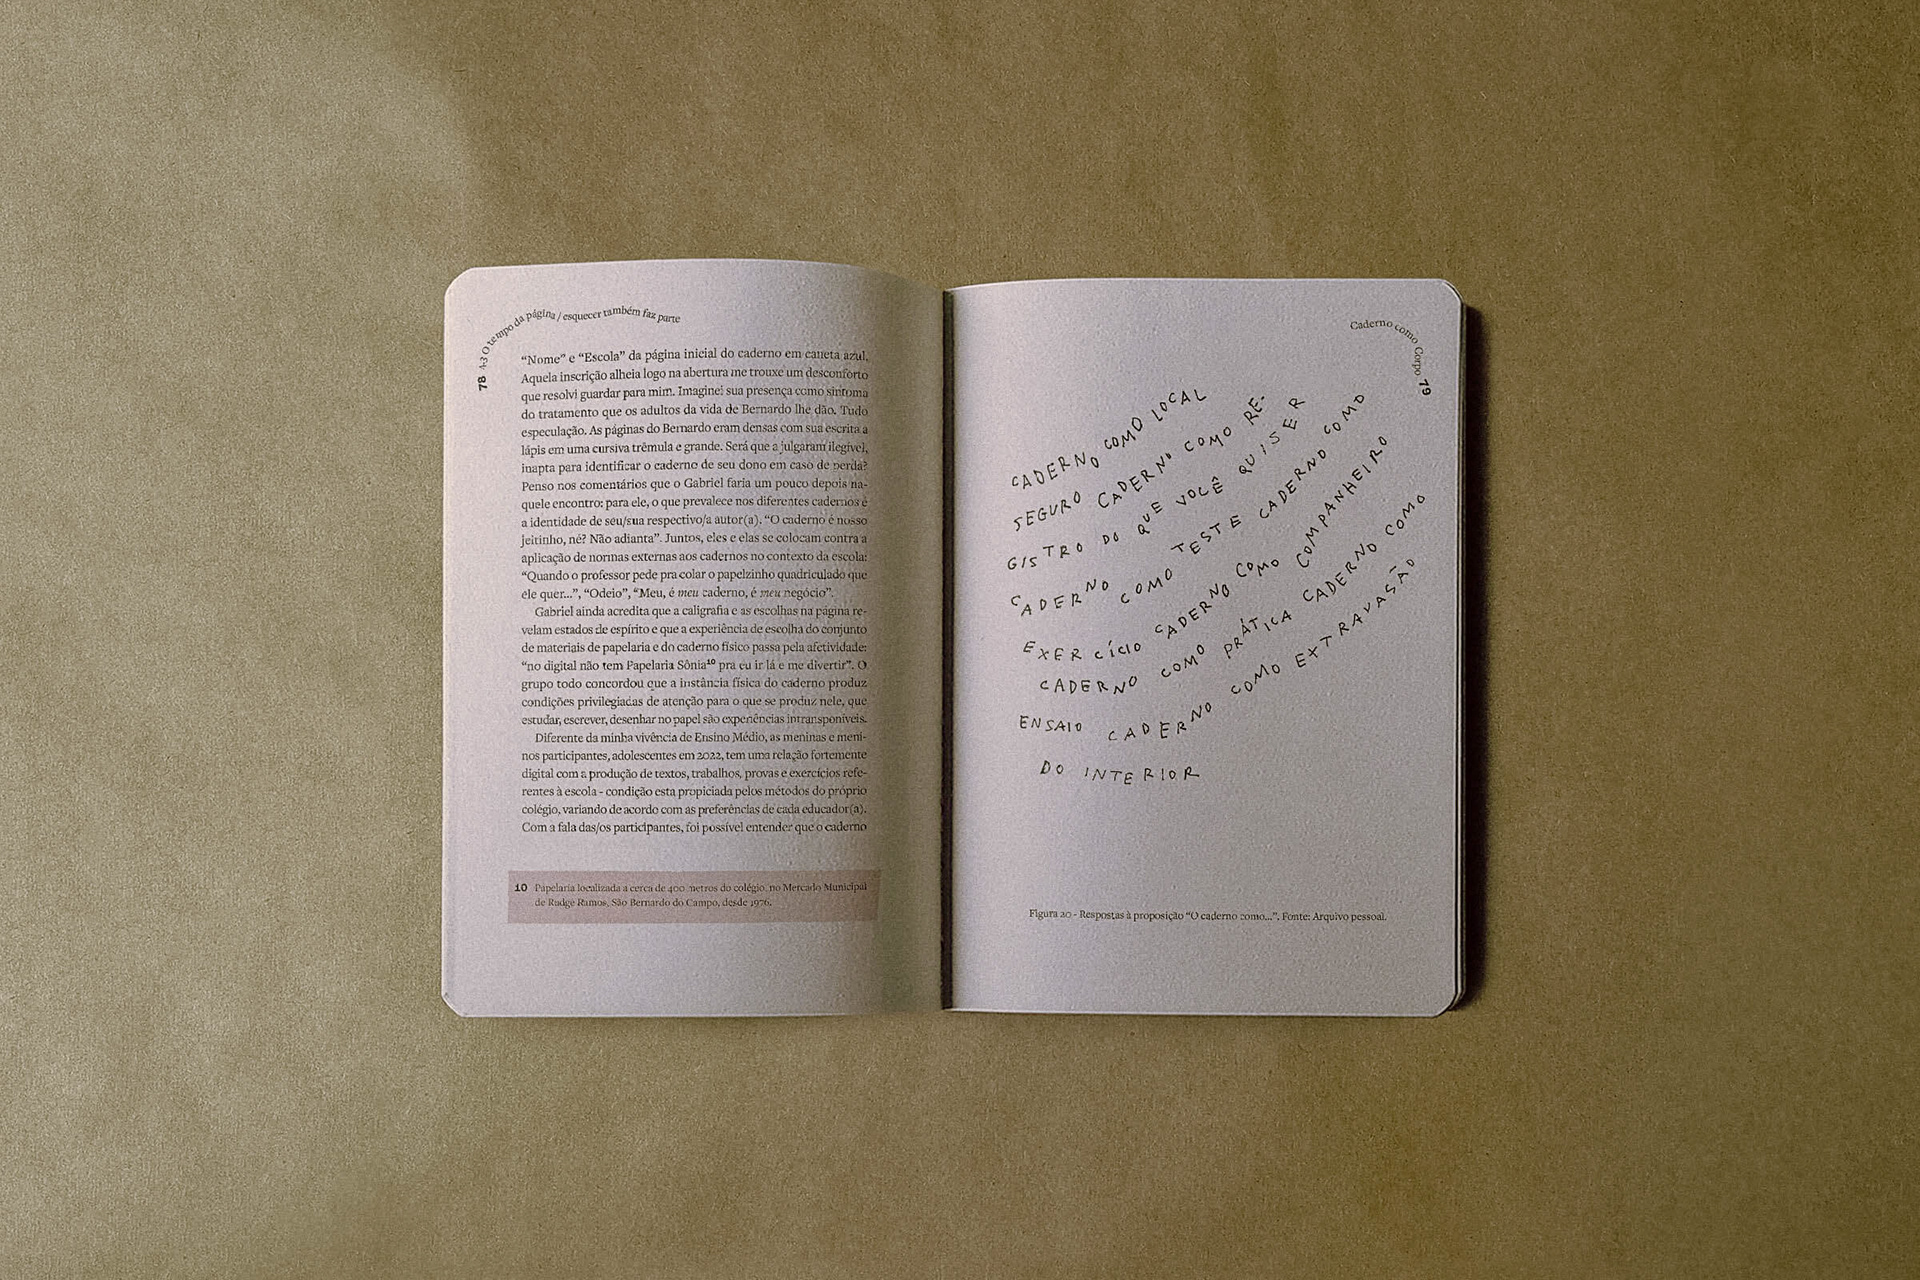 78 4.3 O tempo da página / esquecer também faz parte
“Nome” e “Escola” da página inicial do caderno em caneta azul.
Aquela inscrição alheia logo na abertura me trouxe um desconforto
que resolvi guardar para mim. Imaginei sua presença como sintoma
do tratamento que os adultos da vida de Bernardo lhe dão. Tudo
especulação. As páginas do Bernardo eram densas com sua escrita a
lápis em uma cursiva trêmula e grande. Será que a julgaram ilegível,
inapta para identificar o caderno de seu dono em caso de perda?
Penso nos comentários que o Gabriel faria um pouco depois na-
quele encontro: para ele, o que prevalece nos diferentes cadernos é
a identidade de seu/sua respectivo/a autor(a). “O caderno é nosso
jeitinho, né? Não adianta”. Juntos, eles e elas se colocam contra a
aplicação de normas externas aos cadernos no contexto da escola:
“Quando o professor pede pra colar o papelzinho quadriculado que
ele quer...”, “Odeio”, “Meu, é meu caderno, é meu negócio”.
Gabriel ainda acredita que a caligrafia e as escolhas na página re-
velam estados de espírito e que a experiência de escolha do conjunto
de materiais de papelaria e do caderno físico passa pela afetividade:
“no digital não tem Papelaria Sônia¹⁰ pra eu ir lá e me divertir”. O
grupo todo concordou que a instância física do caderno produz
condições privilegiadas de atenção para o que se produz nele, que
estudar, escrever, desenhar no papel são experiências intransponíveis.
Diferente da minha vivência de Ensino Médio, as meninas e meni-
nos participantes, adolescentes em 2022, tem uma relação fortemente
digital com a produção de textos, trabalhos, provas e exercícios refe-
rentes à escola - condição esta propiciada pelos métodos do próprio
colégio, variando de acordo com as preferências de cada educador(a).
Com a fala das/os participantes, foi possível entender que o caderno
10 Papelaria localizada a cerca de 400 metros do colégio, no Mercado Municipal
de Rudge Ramos, São Bernardo do Campo, desde 1976.
Caderno como Corpo 79
CADERNO COMO LOCAL
SEGURO CADERNO COMO RE-
GISTRO DO QUE VOCÊ QUISER
CADERNO COMO TESTE CADERNO COMO
EXERCÍCIO CADERNO COMO COMPANHEIRO
CADERNO COMO PRÁTICA CADERNO COMO
ENSAIO CADERNO COMO EXTRAVASÃO
DO INTERIOR
Figura 20 - Respostas à proposição “O caderno como...”. Fonte: Arquivo pessoal.